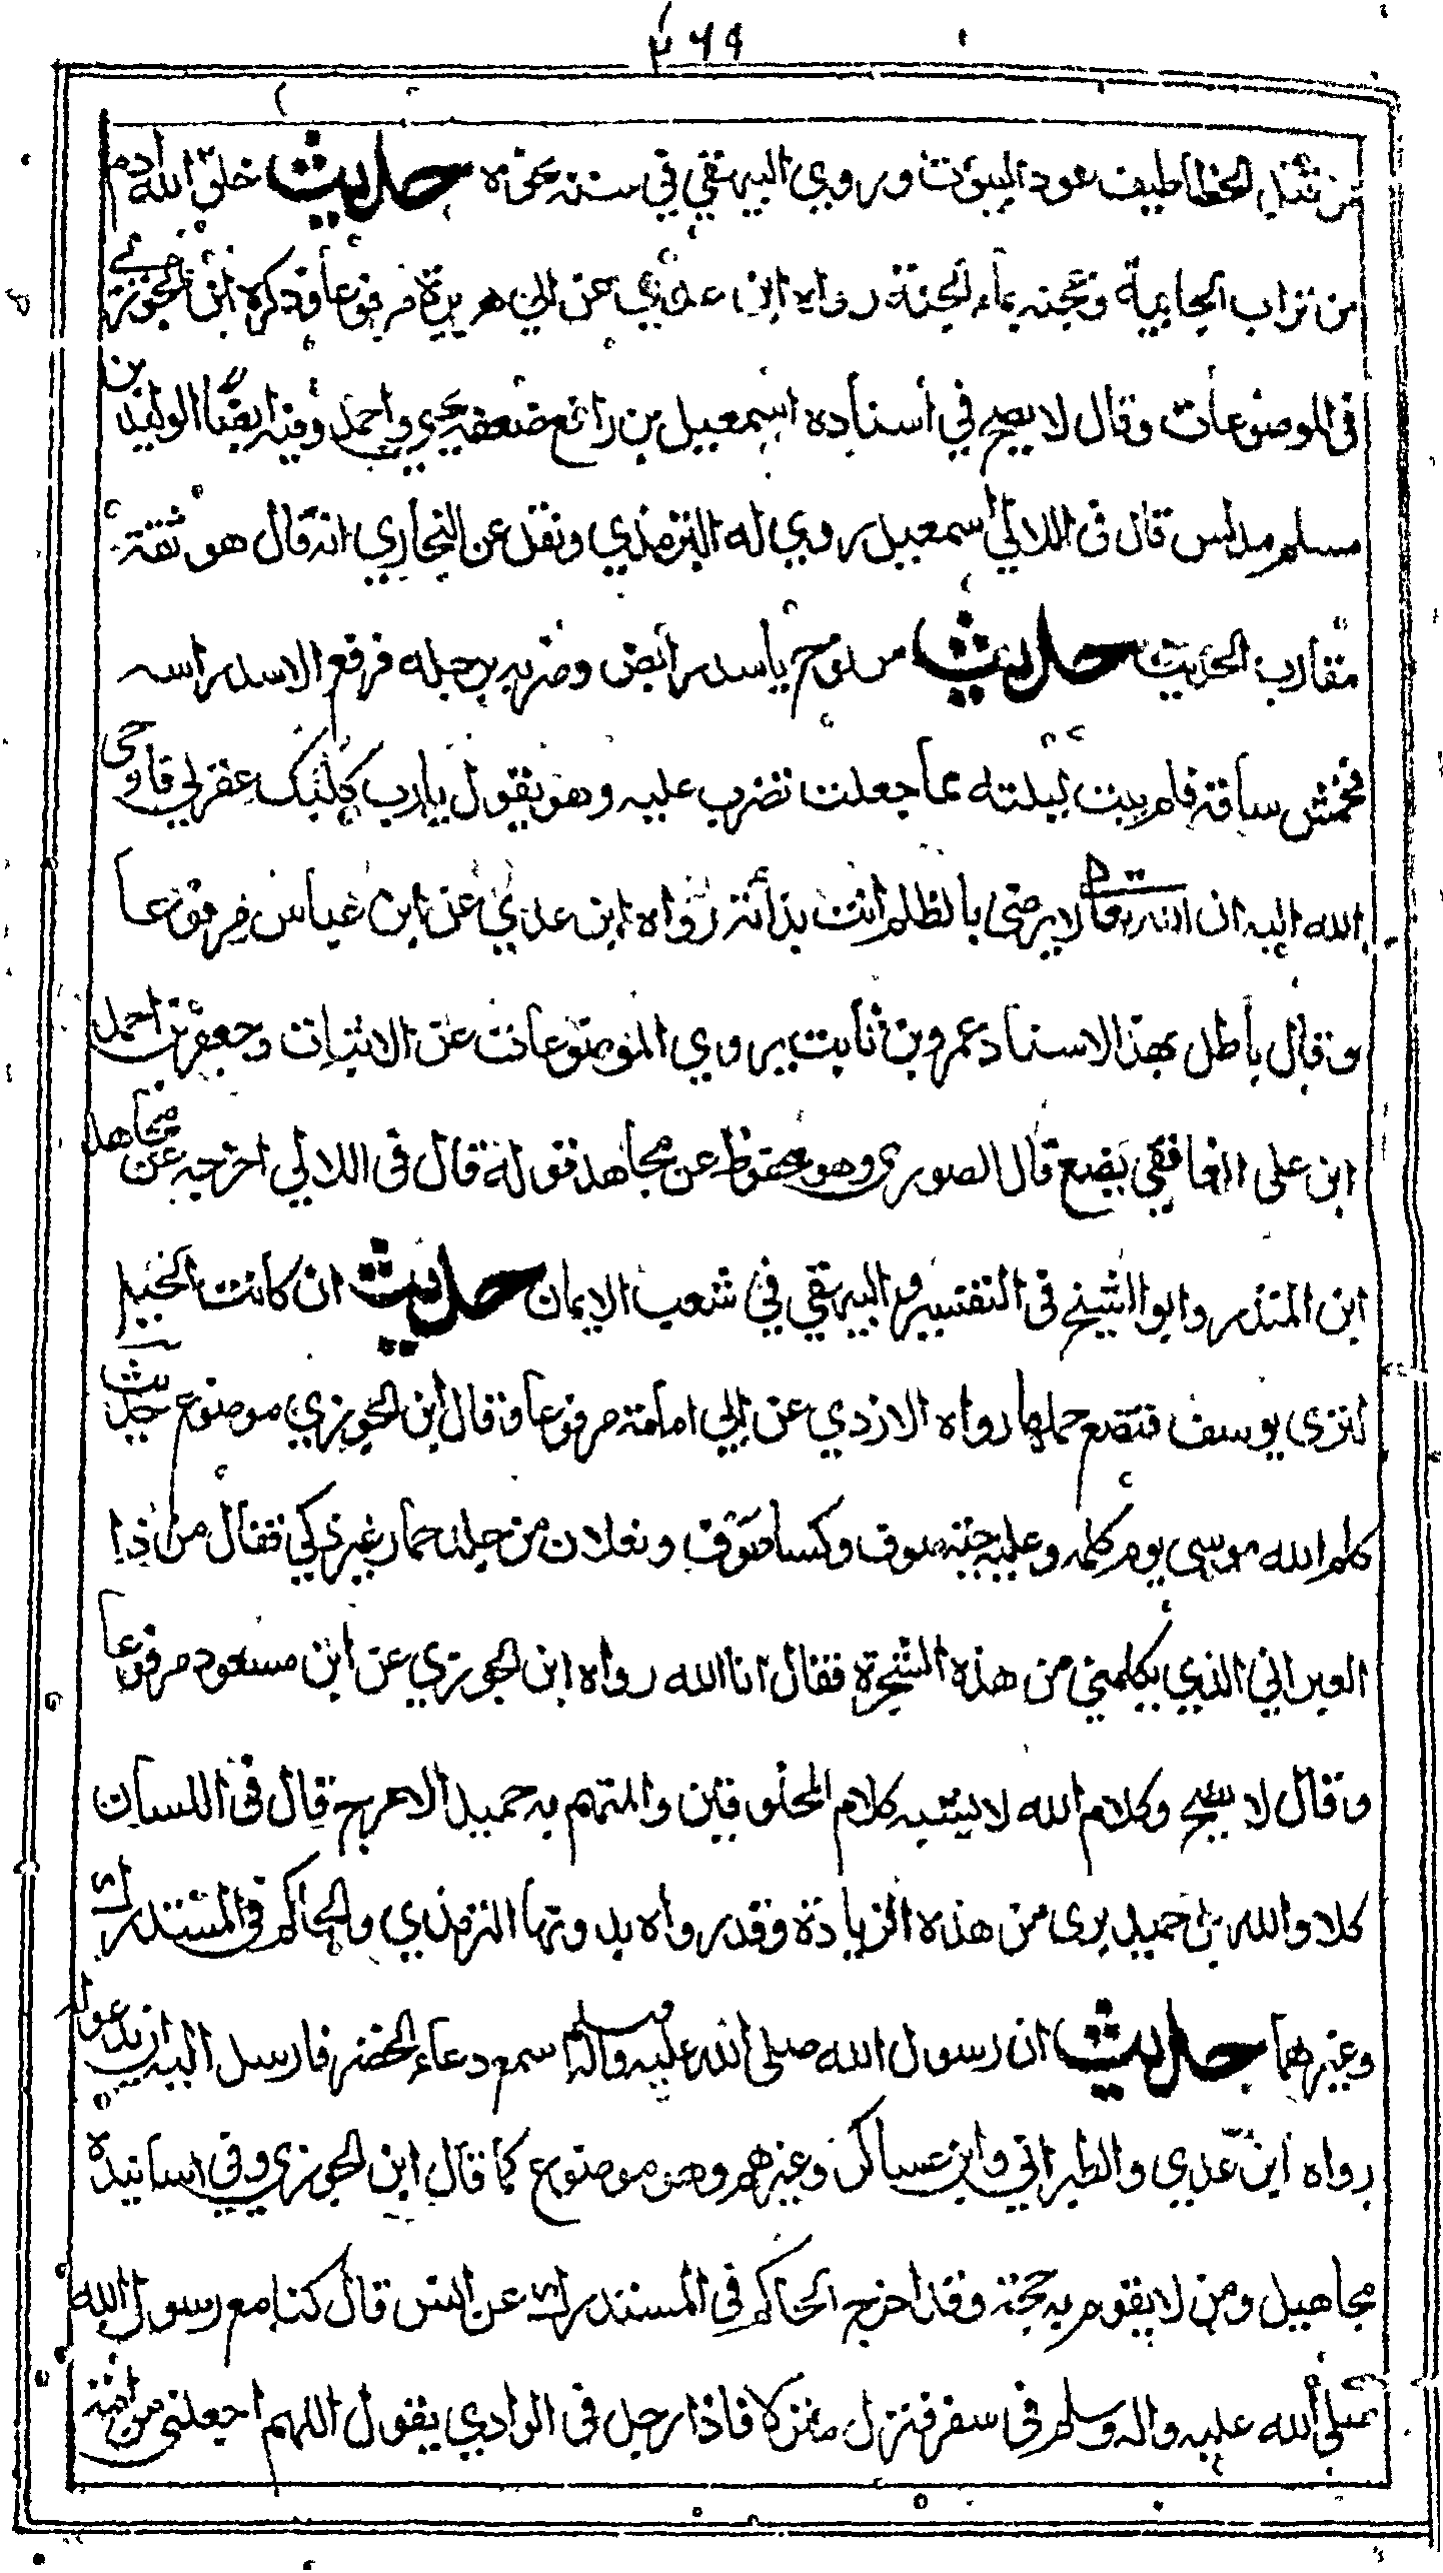 ٢٦٩
عن قتل الخطاطيف عوذ البيوت وروي البيهقي في سننه نحوه حديث خلق الله آدم
من تراب الجابية وعجنه بماء الجنة رواه ابن عدي عن ابي هريرة مرفوعا وذكره ابن الجوزي
في الموضوعات وقال لا يصح في اسناده اسمعيل بن رافع ضعفه يحيى واحمد وفيه ايضا الوليد بن
مسلم مدلس قال في اللالي اسمعيل روي له الترمذي ونقل عن البخاري انه قال هو ثقة
مقارب الحديث حديث مر نوح باسد رابض وضربه برجله فرفع الاسد راسه
فخمش ساقه فلم يبت ليلته مما جعلت تضرب عليه وهو يقول يا رب كلبك عقرني فاوحى
الله اليه ان الله تعالى لا يرضى بالظلم انت بدأته رواه ابن عدي عن ابن عباس مرفوعا
وقال باطل بهذا الاسناد عمرو بن ثابت يروي الموضوعات عن الاثبات وجعفر بن احمد
ابن على الغافقي يضع قال الصوري وهو محفوظ عن مجاهد قوله قال في اللالي اخرجه عن مجاهد
ابن المنذر وابو الشيخ في التفسير والبيهقي في شعب الايمان حديث ان كانت الحبلى
لترى يوسف فتضع حملها رواه الازدي عن ابي امامة مرفوعا وقال ابن الجوزي موضوع حديث
كلم الله موسى يوم كلمه وعليه جبة صوف وكساء صوف ونعلان من جلد حمار غير ذكي فقال من ذا
العبراني الذي يكلمني من هذه الشجرة فقال انا الله رواه ابن الجوزي عن ابن مسعود مرفوعا
وقال لا يصح وكلام الله لا يشبه كلام المخلوقين والمتهم به حميد الاعرج قال في اللسان
كلا والله بل حميد برى من هذه الزيادة وقد رواه بدونها الترمذي والحاكم في المستدرك
وغيرهما حديث ان رسول الله صلى الله عليه واله وسلم سمع دعاء الخضر فارسل اليه ان يدعو له
رواه ابن عدي والطبراني وابن عساكر وغيرهم وهو موضوع كما قال ابن الجوزي وفي اسانيده
مجاهيل ومن لا يقوم به حجة وقد اخرج الحاكم في المستدرك عن انس قال كنا مع رسول الله
صلى الله عليه واله وسلم في سفر فنزل منزلا فاذا رجل في الوادي يقول اللهم اجعلني من امة